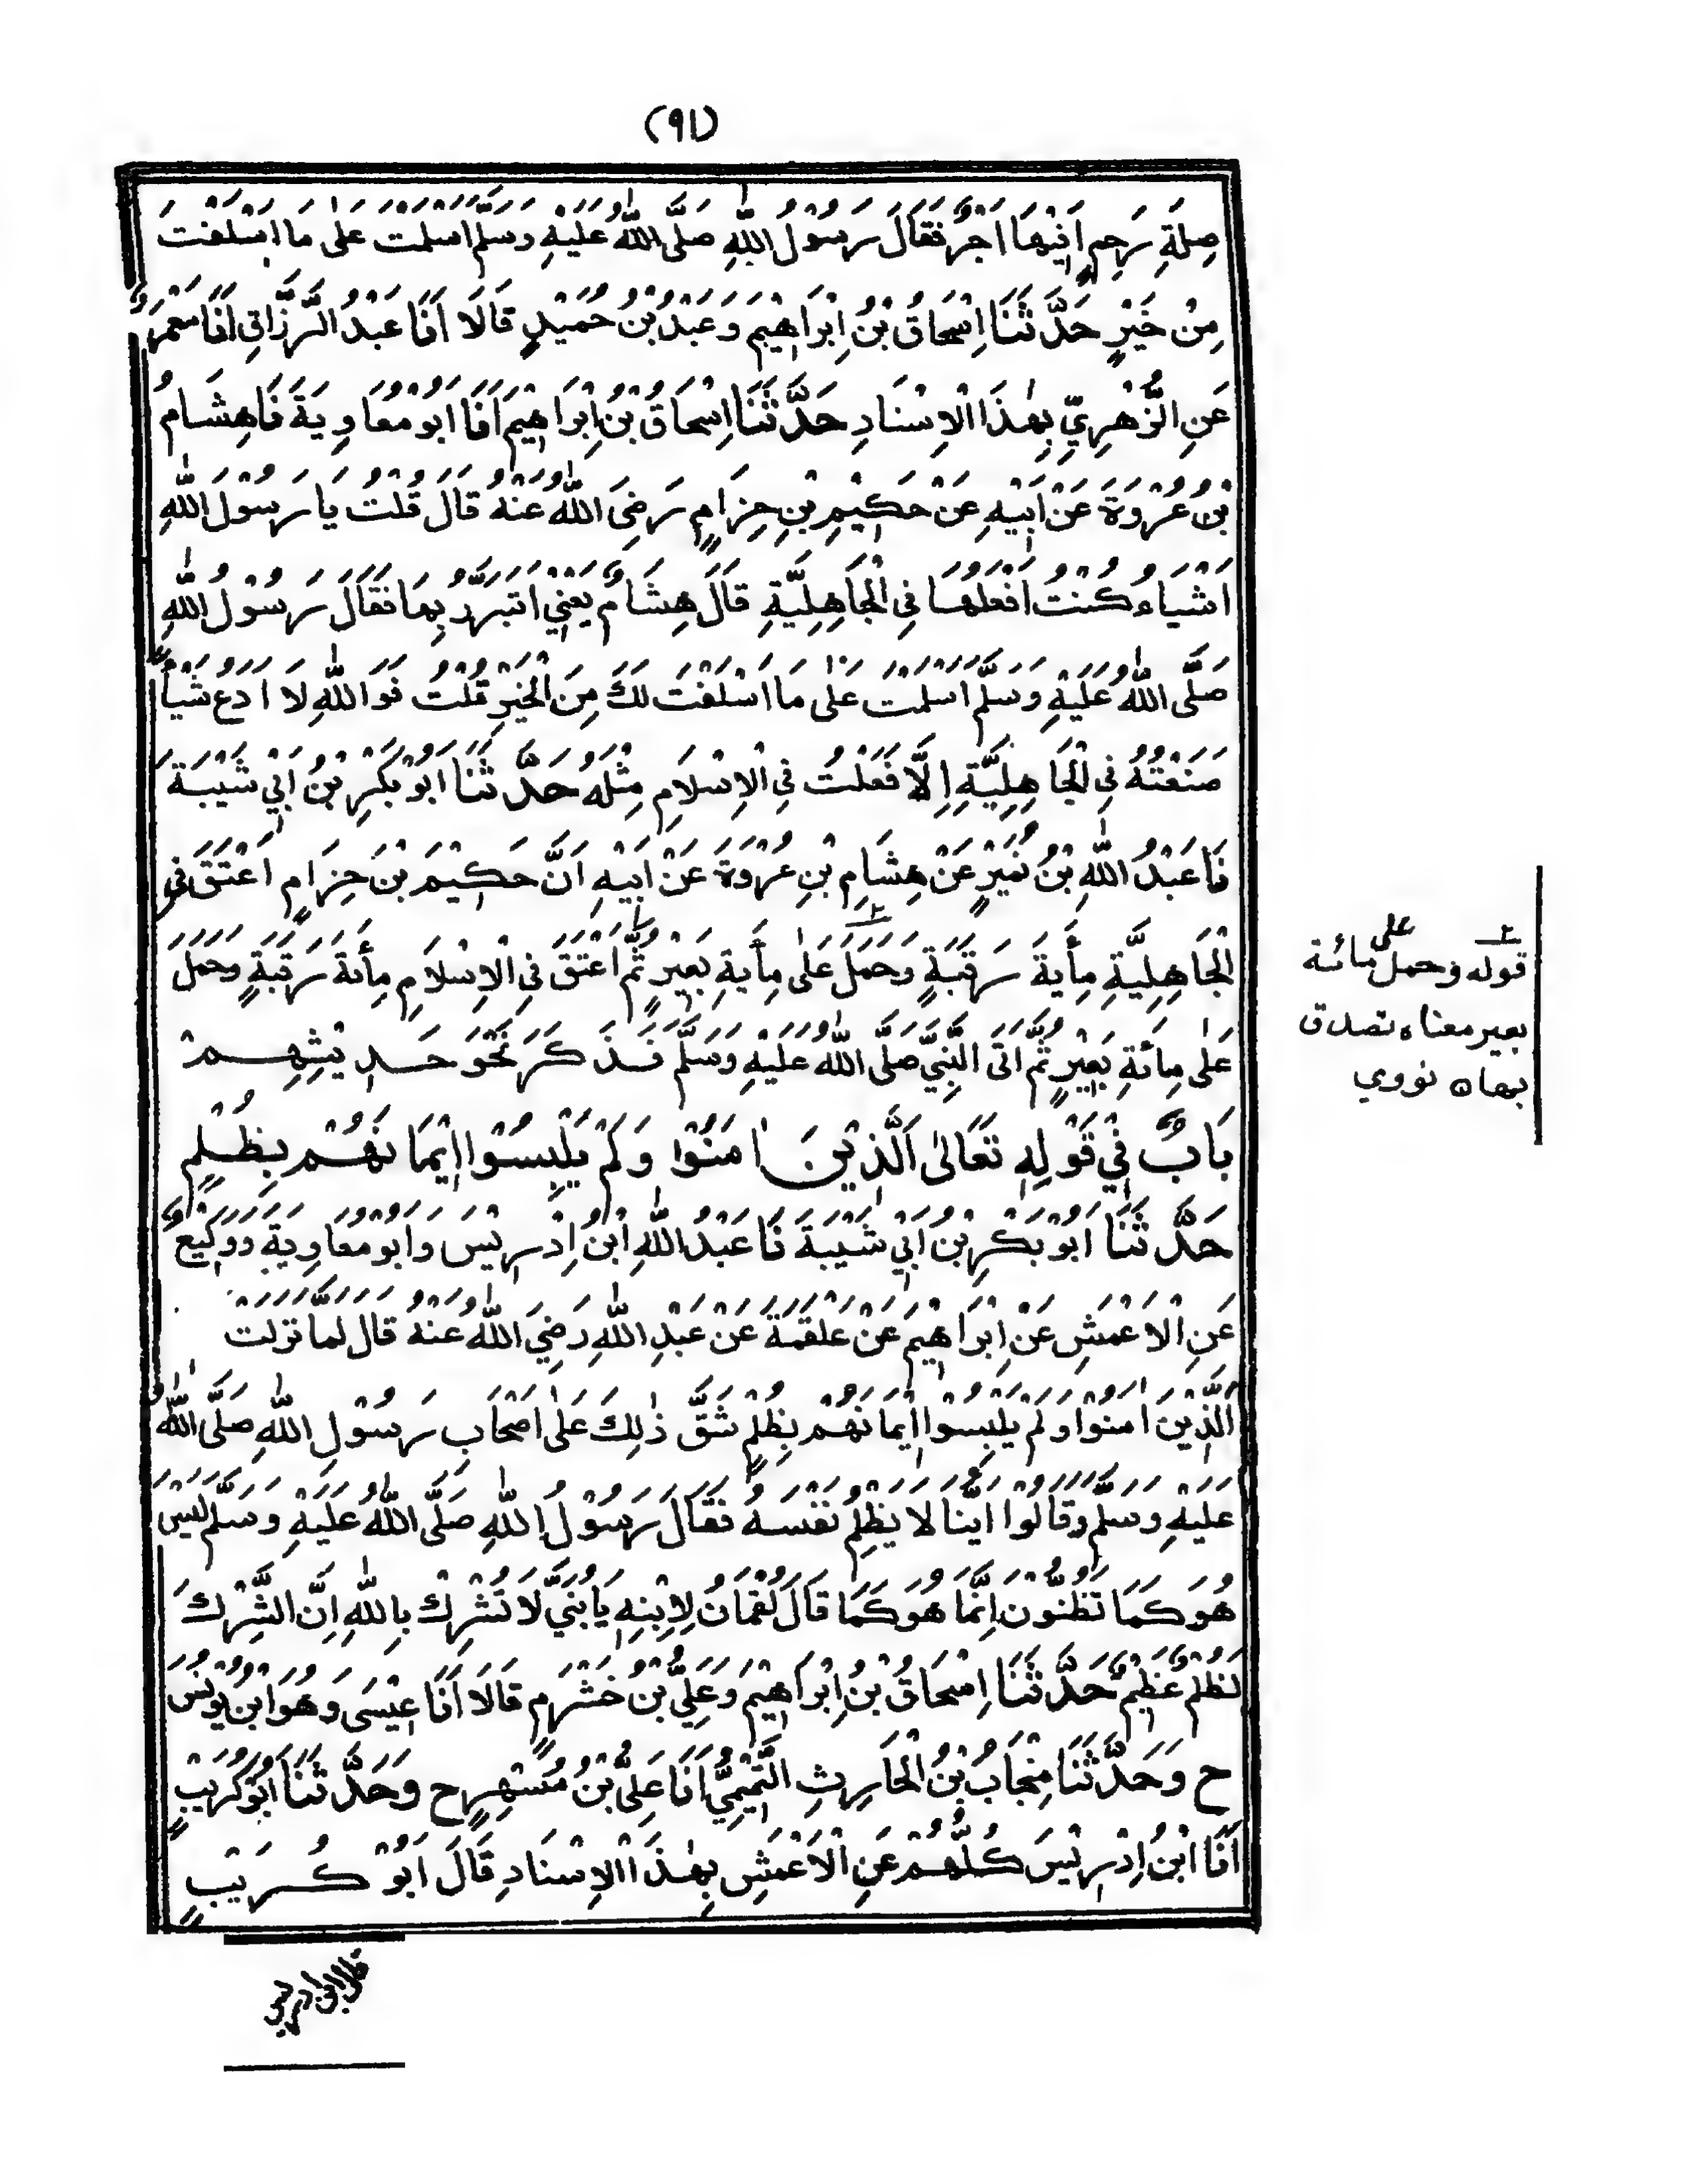 (٩١)
صِلَةِ رَحِمٍ اَفِيْهَا اَجْرٌ فَقَالَ رَسُوْلُ اللّٰهِ صَلَّى اللّٰهُ عَلَيْهِ وَسَلَّمَ اَسْلَمْتَ عَلٰى مَا اَسْلَفْتَ
مِنْ خَيْرٍ حَدَّثَنَا اِسْحَاقُ بْنُ اِبْرَاهِيْمَ وَعَبْدُ بْنُ حُمَيْدٍ قَالَا اَنَا عَبْدُ الرَّزَّاقِ اَنَا مَعْمَرٌ
عَنِ الزُّهْرِيِّ بِهٰذَا الْاِسْنَادِ حَدَّثَنَا اِسْحَاقُ بْنُ اِبْرَاهِيْمَ اَنَا اَبُوْ مُعَاوِيَةَ نَا هِشَامُ
بْنُ عُرْوَةَ عَنْ اَبِيْهِ عَنْ حَكِيْمِ بْنِ حِزَامٍ رَضِىَ اللّٰهُ عَنْهُ قَالَ قُلْتُ يَا رَسُوْلَ اللّٰهِ
اَشْيَاءُ كُنْتُ اَفْعَلُهَا فِى الْجَاهِلِيَّةِ قَالَ هِشَامٌ يَعْنِيْ اَتَبَرَّرُ بِهَا فَقَالَ رَسُوْلُ اللّٰهِ
صَلَّى اللّٰهُ عَلَيْهِ وَسَلَّمَ اَسْلَمْتَ عَلٰى مَا اَسْلَفْتَ لَكَ مِنَ الْخَيْرِ قُلْتُ فَوَاللّٰهِ لَا اَدَعُ شَيْأً
صَنَعْتُهُ فِى الْجَاهِلِيَّةِ اِلَّا فَعَلْتُ فِى الْاِسْلَامِ مِثْلَهُ حَدَّثَنَا اَبُوْ بَكْرِ بْنُ اَبِيْ شَيْبَةَ
نَا عَبْدُ اللّٰهِ بْنُ نُمَيْرٍ عَنْ هِشَامِ بْنِ عُرْوَةَ عَنْ اَبِيْهِ اَنَّ حَكِيْمَ بْنَ حِزَامٍ اَعْتَقَ فِى
الْجَاهِلِيَّةِ مِأَيةَ رَقَبَةٍ وَحَمَلَ عَلٰى مِأَيةِ بَعِيْرٍ ثُمَّ اَعْتَقَ فِى الْاِسْلَامِ مِأَئةَ رَقَبَةٍ وَحَمَلَ
عَلٰى مِائَةِ بَعِيْرٍ ثُمَّ اَتَى النَّبِىَّ صَلَّى اللّٰهُ عَلَيْهِ وَسَلَّمَ فَذَكَرَ نَحْوَ حَدِيْثِهِمْ
بَابٌ فِيْ قَوْلِهٖ تَعَالٰى اَلَّذِيْنَ اٰمَنُوْا وَلَمْ يَلْبِسُوْا اِيْمَانَهُمْ بِظُلْمٍ
حَدَّثَنَا اَبُوْ بَكْرِ بْنُ اَبِيْ شَيْبَةَ نَا عَبْدُ اللّٰهِ ابْنُ اِدْرِيْسَ وَاَبُوْ مُعَاوِيَةَ وَوَكِيْعٌ
عَنِ الْاَعْمَشِ عَنْ اِبْرَاهِيْمَ عَنْ عَلْقَمَةَ عَنْ عَبْدِ اللّٰهِ رَضِيَ اللّٰهُ عَنْهُ قَالَ لَمَّا نَزَلَتْ
اَلَّذِيْنَ اٰمَنُوْا وَلَمْ يَلْبِسُوْا اِيْمَانَهُمْ بِظُلْمٍ شَقَّ ذٰلِكَ عَلٰى اَصْحَابِ رَسُوْلِ اللّٰهِ صَلَّى اللّٰهُ
عَلَيْهِ وَسَلَّمَ وَقَالُوْا اَيُّنَا لَا يَظْلِمُ نَفْسَهُ فَقَالَ رَسُوْلُ اللّٰهِ صَلَّى اللّٰهُ عَلَيْهِ وَسَلَّمَ لَيْسَ
هُوَ كَمَا تَظُنُّوْنَ اِنَّمَا هُوَ كَمَا قَالَ لُقْمَانُ لِابْنِهٖ يَا بُنَيَّ لَا تُشْرِكْ بِاللّٰهِ اِنَّ الشِّرْكَ
لَظُلْمٌ عَظِيْمٌ حَدَّثَنَا اِسْحَاقُ بْنُ اِبْرَاهِيْمَ وَعَلِيُّ بْنُ خَشْرَمٍ قَالَا اَنَا عِيْسَى وَهُوَ ابْنُ يُوْنُسَ
ح وَحَدَّثَنَا مِنْجَابُ بْنُ الْحَارِثِ التَّمِيْمِيُّ اَنَا عَلِىُّ بْنُ مُسْهِرٍ ح وَحَدَّثَنَا اَبُوْ كُرَيْبٍ
اَنَا ابْنُ اِدْرِيْسَ كُلُّهُمْ عَنِ الْاَعْمَشِ بِهٰذَا الْاِسْنَادِ قَالَ اَبُوْ كُرَيْبٍ
قال ابن ادريس
٢
قوله وحمل على مائة
بعير معناه تصدق
بها ٥ نووي